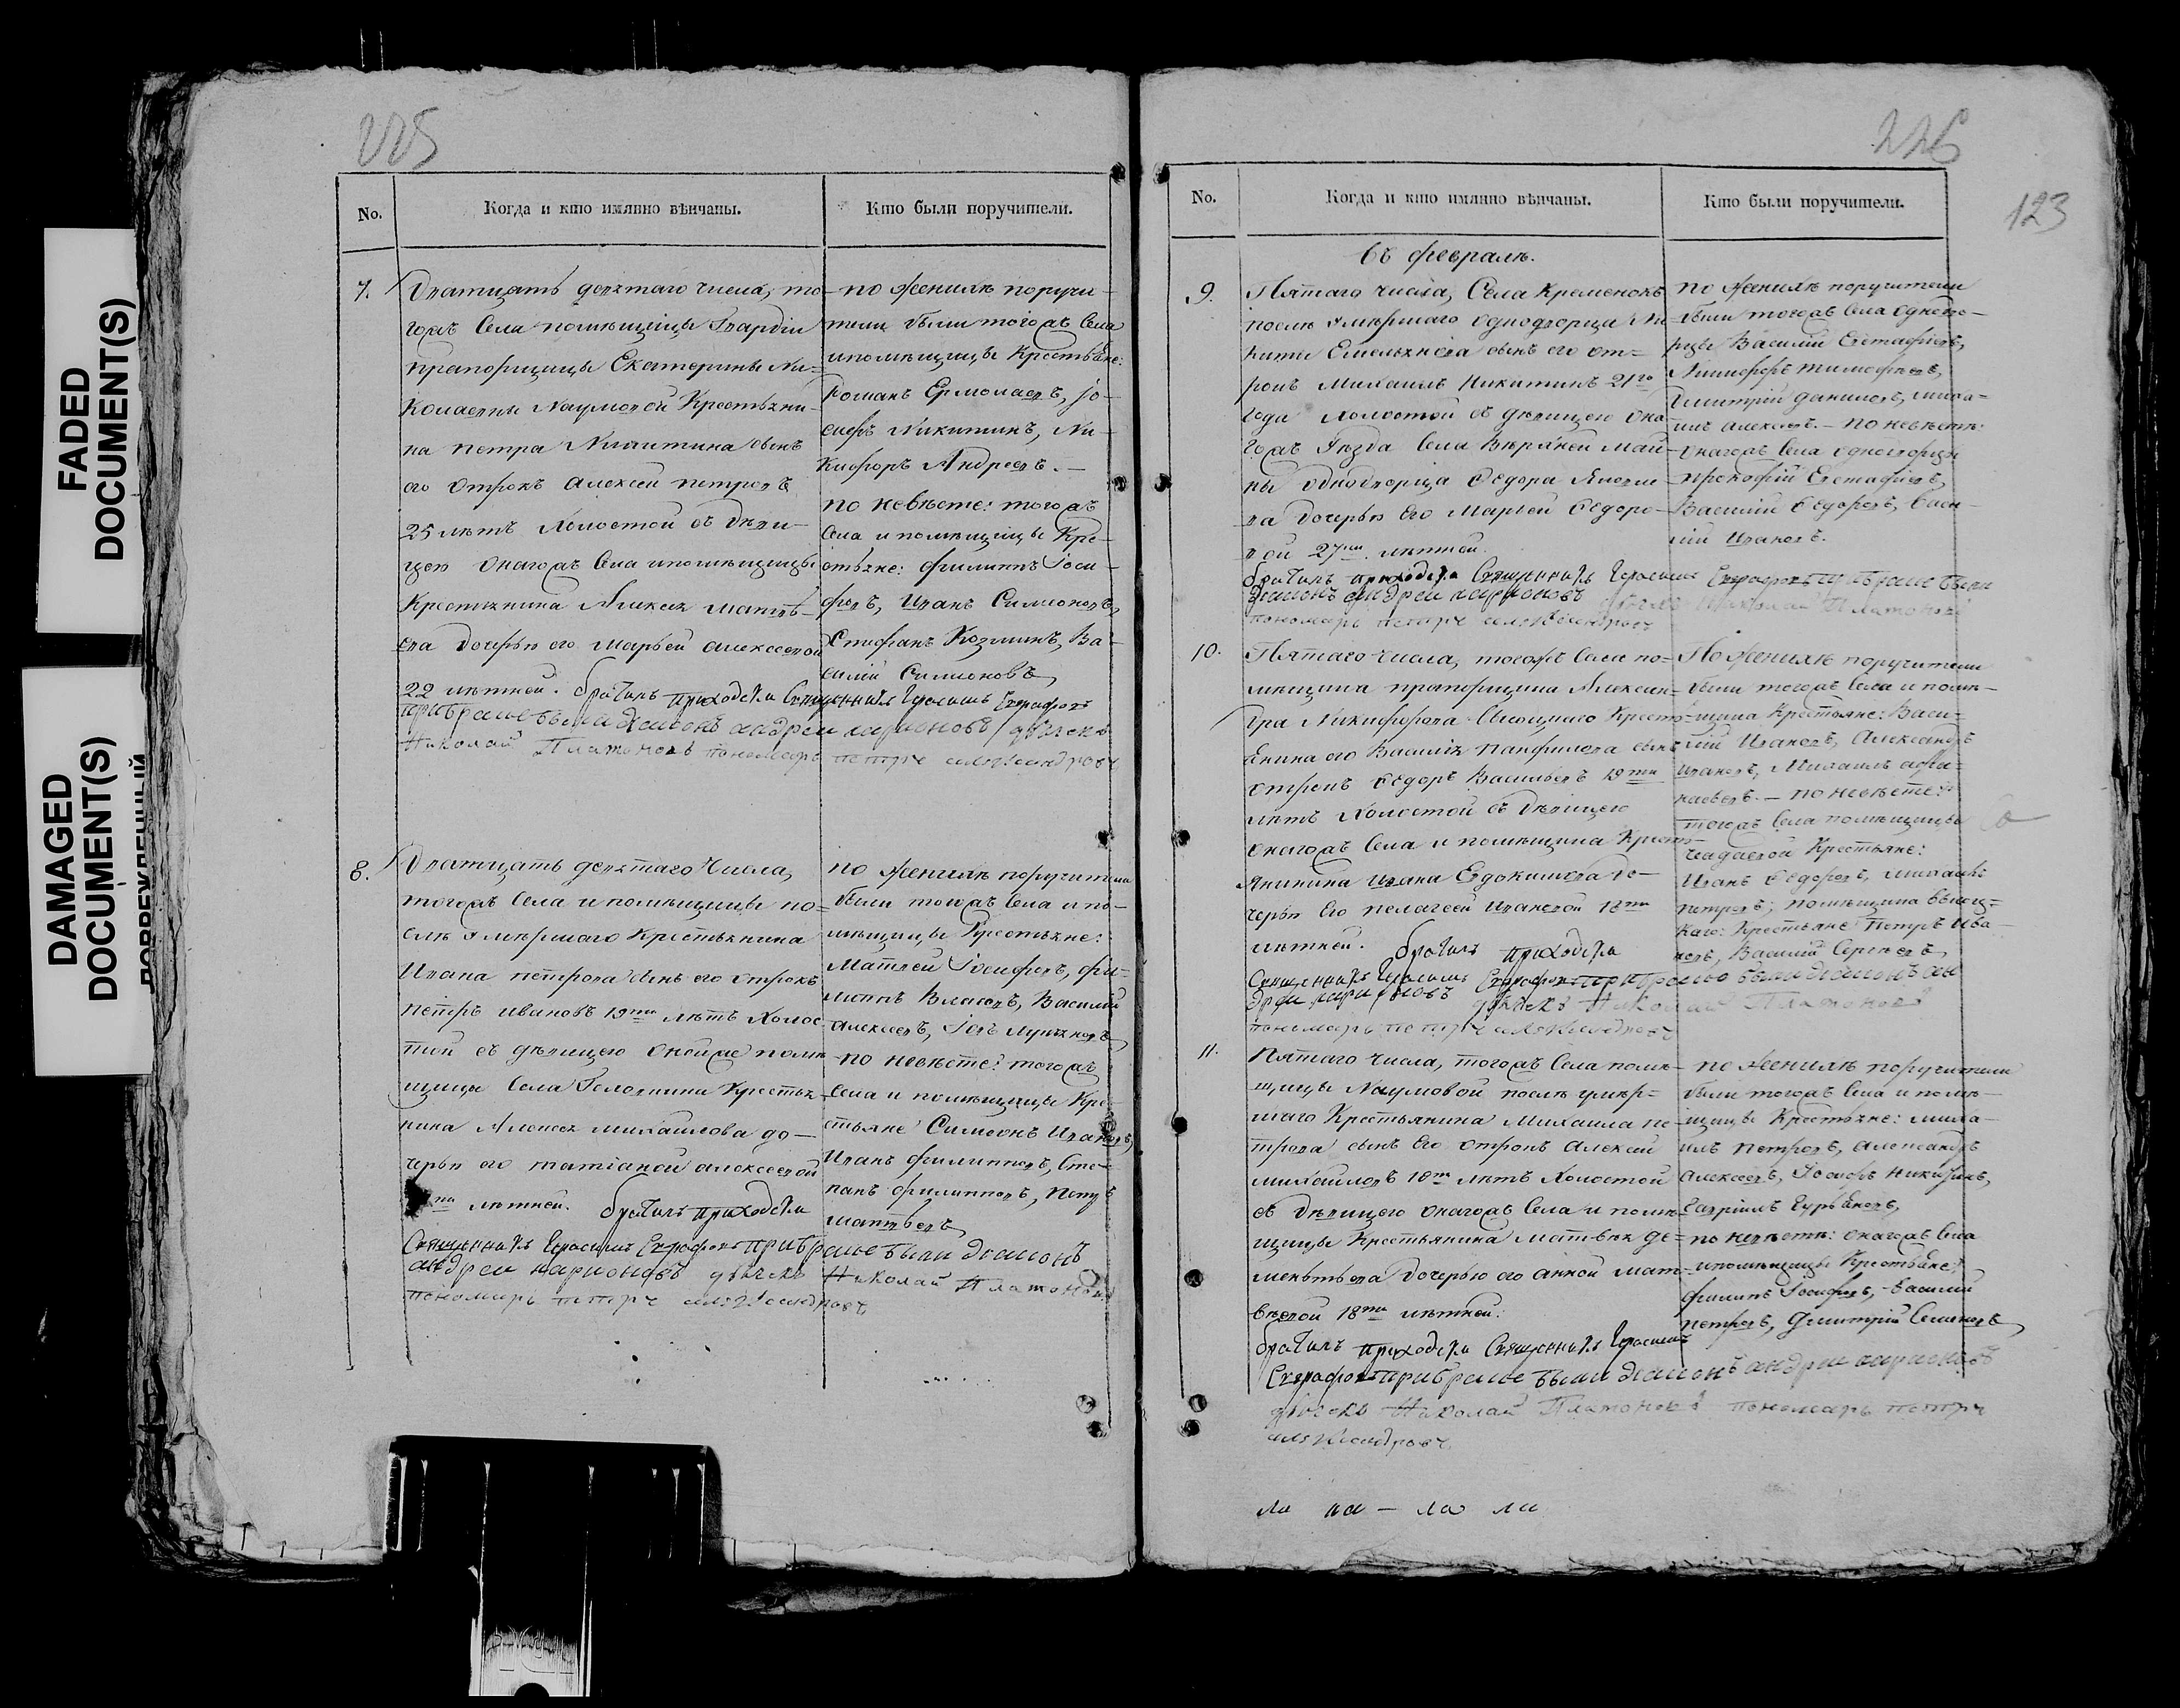 FADED
DOCUMENT(S)
DAMAGED
DOCUMENT(S)
225
No.
Когда и кто имянно вѣнчаны.
Кто были поручители.
7.
Дватцать девятаго числа, то-
гожъ села помѣщицы Гвардіи
прапорщицы Екатерины Ни-
колаевны Наумовой Крестьяни-
на петра Никитина сынъ
его отрокъ Алексей петровъ
25 лѣтъ холостой съ дѣви-
цею онагожъ села и помѣщицы
Крестьянина Алексея Матвѣ-
ева дочерью его Марьей алексеевой
22 лѣтней. бракъ приходски Священникъ Герасимъ
при браке были диаконъ андреи ларионовъ дьячекъ
Николай Платоновъ пономарь петръ александровъ
по женихѣ поручи-
тели были тогожъ села
и помѣщицы Крестьяне:
Романъ Ермолаевъ, Іо-
сифъ Никитинъ, Ни-
кифоръ Андреевъ. —
по невѣсте: тогожъ
села и помѣщицы Кре-
стьяне: филиппъ Іоси-
фовъ, Иванъ Симионовъ,
Стифанъ Козминъ, Ва-
силій Симионовъ,
8.
Дватцать девятаго Числа,
тогожъ села и помѣщицы по-
слѣ умершаго Крестьянина
Ивана петрова сынъ его отрокъ
петръ ивановъ 19ти лѣтъ холос
той съ дѣвицею онойже помѣ
щицы села Крестья-
нина Алексея михайлова до-
черью его татіаной алексеевой
лѣтней. приходски
Священникъ Герасимъ при браке были диаконъ
андреи ларионовъ дьячекъ Николай Платоновъ
пономарь петръ александровъ
по женихѣ поручители
были тогожъ села и по-
мѣщицы Крестьяне:
Матвей Іосифовъ, фи-
липпъ Власовъ, Василий
алексеевъ,
по невѣсте: тогожъ
села и помѣщицы Кре-
стьяне Симеонъ Ивановъ,
Иванъ филипповъ, Сте-
панъ филипповъ, петръ
матвѣевъ
226
123
No.
Когда и кто имянно вѣнчаны.
Кто были поручители.
въ февралѣ.
9.
Пятаго числа, Села Кременокъ
послѣ умѣршаго однодворца Ни
киты Емельянова сынъ его от-
рокъ Михаилъ Никитинъ 21го
года холостой съ дѣвицею она
гожъ уѣзда села Верхней Май-
ны однодворца Ѳедора
дочерью его Марьей Ѳедоро-
вой 27ми лѣтней.
приходски Священникъ Герасимъ при браке были
диаконъ андреи ларионовъ дьячекъ Николай Платоновъ
пономарь петръ александровъ
по женихѣ поручители
были тогожъ села однодво-
рцы Василій Евстафіевъ,
Никифоръ тимофеевъ,
Дмитрій даниловъ, миха-
илъ алексеевъ. — по невѣстѣ:
онагожъ села однодворцы
Прокофій Евстафіевъ,
Василій Ѳедоровъ, Васи-
лій Ивановъ.
10.
Пятаго числа, тогожъ села по-
мѣщика прапорщика Алексан-
дра Никифорова Крестья-
нина его Василія Панфилова сынъ
отрокъ Ѳедоръ Васильевъ 19ти
лѣтъ холостой съ дѣвицею
онагожъ села и помѣщика Кресть-
янинина Ивана Евдокимова до-
черью его пелагеей Ивановой 18ти
лѣтней. приходски
Священникъ Герасимъ при браке были диаконъ ан
дреи ларионовъ дьячекъ Николай Платоновъ
пономарь петръ александровъ
По женихѣ поручители
были тогожъ села и помѣ-
щика Крестьяне: Васи-
лій Ивановъ, Александръ
Ивановъ, Михаилъ афа-
насьевъ. — по невѣсте:
тогожъ села помѣщицы
Крестьяне:
Иванъ Ѳедоровъ, михаилъ
петровъ; помѣщика
Крестьяне петръ Ива-
новъ, Василій Сергѣевъ
11.
Пятаго числа, тогожъ села помѣ-
щицы Наумовой послѣ умер-
шаго Крестьянина Михаила пе-
трова сынъ его отрокъ Алексей
михайловъ 18ти лѣтъ холостой
съ дѣвицею онагожъ села и помѣ-
щицы Крестьянина матвѣя де-
ментьева дочерью его анной мат-
вѣевой 18ти лѣтней.
приходски Священникъ Герасимъ
при браке были диаконъ андреи ларионовъ
дьячекъ Николай Платоновъ пономарь петръ
александровъ
по женихѣ поручители
были тогожъ села и помѣ-
щицы Крестьяне: миха-
илъ петровъ, александръ
алексеевъ, Іосифъ Никитинъ,
Гаврiилъ Гурьяновъ,
по невѣстѣ: онагожъ села
и помѣщицы Крестьяне:
филипъ Іосифовъ, Василій
петровъ, Дмитрій Семеновъ,